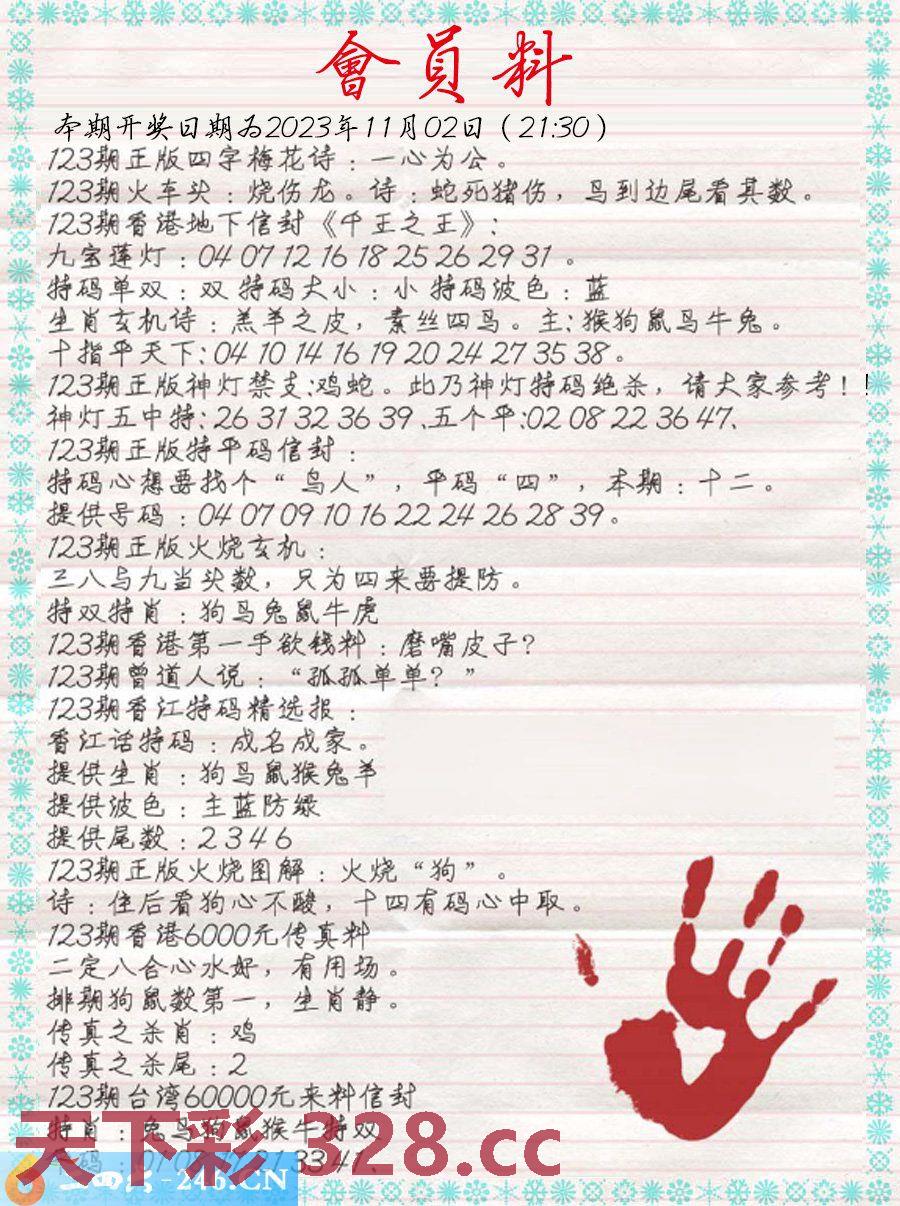 會員料
本期开奖日期为2023年11月02日（21:30）
123期正版四字梅花诗：一心为公。
123期火车头：烧伤龙。诗：蛇死猪伤，鸟到边尾看其数。
123期香港地下信封《千王之王》：
九宝莲灯：04 07 12 16 18 25 26 29 31 。
特码单双：双 特码大小：小 特码波色：蓝
生肖玄机诗：羔羊之皮，素丝四鸟。主：猴狗鼠鸟牛兔。
十指平天下：04 10 14 16 19 20 24 27 35 38 。
123期正版神灯禁支：鸡蛇。此乃神灯特码绝杀，请大家参考！！
神灯五中特：26 31 32 36 39 、五个平：02 08 22 36 47、
123期正版特平码信封：
特码心想要找个“鸟人”，平码“四”，本期：十二。
提供号码：04 07 09 10 16 22 24 26 28 39。
123期正版火烧玄机：
三八与九当头数，只为四来要提防。
特双特肖：狗鸟兔鼠牛虎
123期香港第一手欲钱料：磨嘴皮子？
123期曾道人说：“孤孤单单？”
123期香江特码精选报：
香江话特码：成名成家。
提供生肖：狗鸟鼠猴兔羊
提供波色：主蓝防绿
提供尾数：2 3 4 6
123期正版火烧图解：火烧“狗”。
诗：住后看狗心不酸，十四有码心中取。
123期香港6000元传真料
二定八合心水好，有用场。
排期狗鼠数第一，生肖静。
传真之杀肖：鸡
传真之杀尾：2
123期台湾60000元来料信封
特肖：兔鸟狗鼠猴牛特双
天下彩 328.cc
33 41、
-246.CN